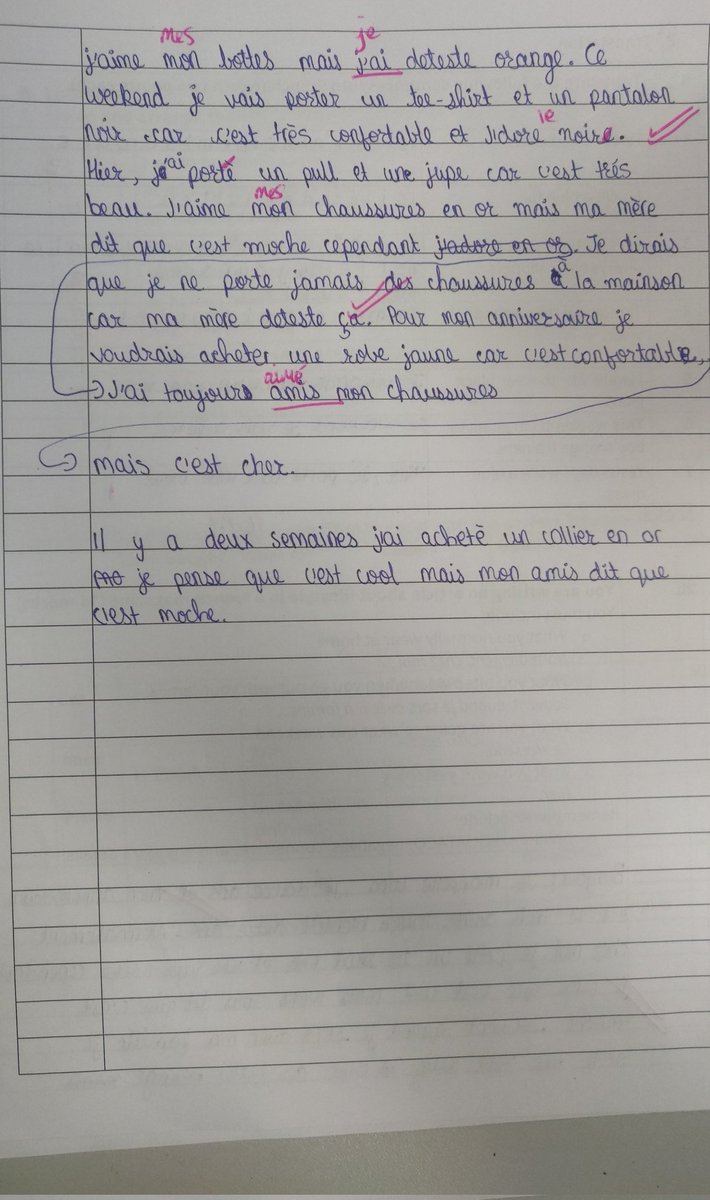 mes je
j'aime mon bottes mais j'ai deteste orange. Ce
weekend je vais porter un tee-shirt et un pantalon
noir car c'est très confortable et j'dore le noire.
Hier, j'ai porté un pull et une jupe car c'est trés
mes
beau. J'aime mon chaussures en or mais ma mère
dit que c'est moche cependant j'adore en or. Je dirais
que je ne porte jamais des chaussures à la mainson
car ma mère deteste ça. Pour mon anniversaire je
voudrais acheter une robe jaune car c'est confortable,
aimé
J'ai toujours amis mon chaussures
mais c'est cher.
Il y a deux semaines j'ai acheté un collier en or
je pense que c'est cool mais mon amis dit que
c'est moche.